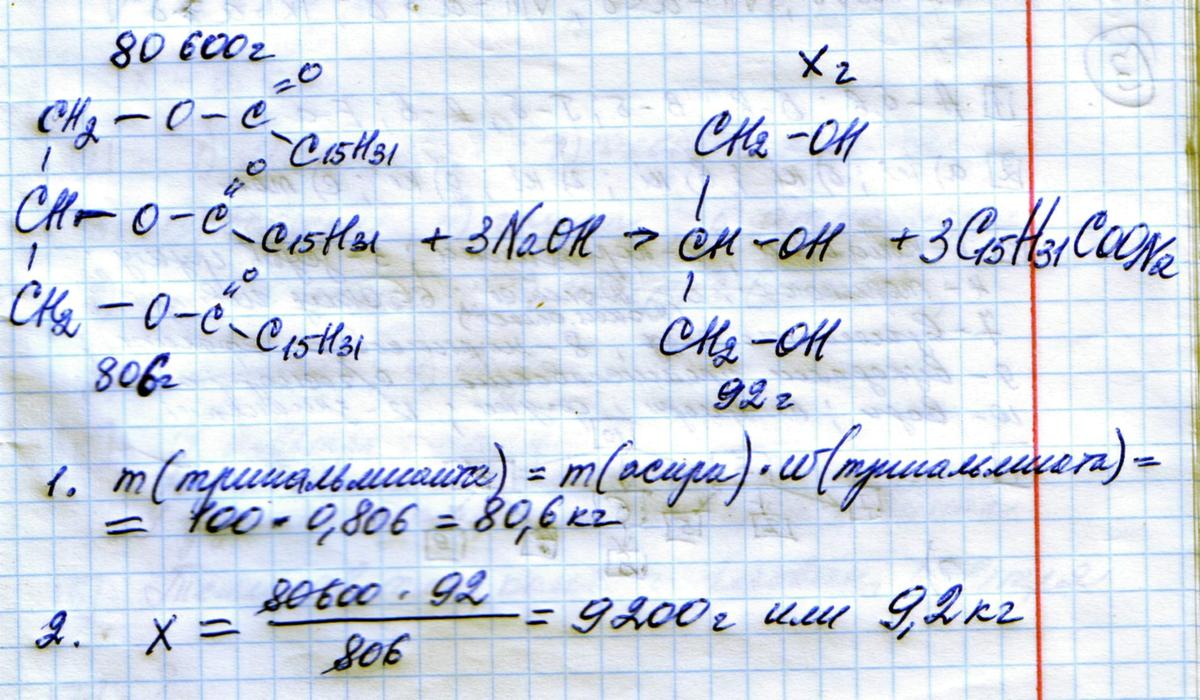 80 600г
X г
CH2 — O — C =O
C15H31
CH — O — C =O
C15H31 + 3NaOH → 
CH2 — O — C =O
C15H31
806г
CH2 — OH
CH — OH + 3C15H31COONa
CH2 — OH
92 г
1. m(трипальмиата) = m(жира) · w(трипальмиата) =
= 100 · 0,806 = 80,6 кг
2. X = 80600 · 92 / 806 = 9200г или 9,2 кг